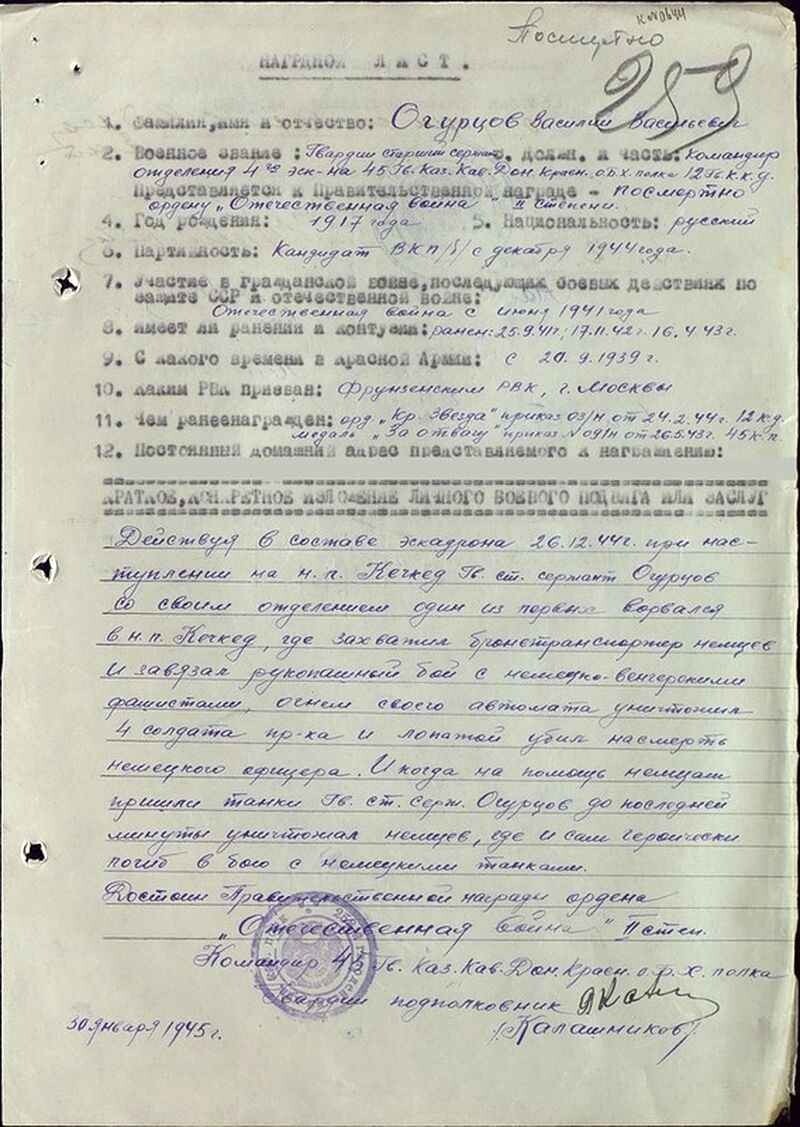 Посмертно
259
НАГРДНОЙ ЛИСТ.
1. Фамилия, имя и отчество: Огурцов Василий Васильевич
2. Военное звание: Гвардии старший сержант 3. должн. и часть: командир
отделения 4 го эск-на 45 Гв. Каз. Кав. Дон. Красн. о.Б.Х. полка 12 Гв. К.К.Д.
Представляется к Правительственной награде - посмертно
ордену „Отечественная война" II степени.
4. Год рождения: 1917 года 5. Национальность: русский
6. Партийность: Кандидат ВКП/б/ с декабря 1944 года.
7. Участие в гражданской войне, последующих боевых действиях по
защите ССР и отечественной войне:
Отечественная война с июня 1941 года
8. имеет ли ранения и контузии: ранен: 25.9.41г.; 17.11.42г. 16.4.43г.
9. С какого времени в Красной Армии: с 20.9.1939г.
10. каким РВК призван: Фрунзенским РВК, г. Москвы
11. Чем ранеенагражден: орд. „Кр. Звезда" приказ 03/н от 24.2.44г. 12 к.д.
медаль „За отвагу" приказ №09/н от 26.5.43г. 45 к.п.
12. Постоянный домашний адрес представляемого к награждению:
КРАТКОЕ, КОНКРЕТНОЕ ИЗЛОЖЕНИЕ ЛИЧНОГО БОЕВОГО ПОДВИГА ИЛИ ЗАСЛУГ
Действуя в составе эскадрона 26.12.44г. при нас-
туплении на н.п. Кечкед Гв. ст. сержант Огурцов
со своим отделением один из первых ворвался
в н.п. Кечкед, где захватил бронетранспортер немцев
и завязал рукопашный бой с немецко-венгерскими
фашистами, огнем своего автомата уничтожил
4 солдата пр-ка и лопатой убил насмерть
немецкого офицера. И когда на помощь немцам
пришли танки Гв. ст. серж. Огурцов до последней
минуты уничтожал немцев, где и сам героически
погиб в бою с немецкими танками.
Достоин Правительственной награды ордена
„Отечественная война" II степ.
Командир 45 Гв. Каз. Кав. Дон. Красн. о.Б.Х. полка
Гвардии подполковник
/Калашников/
30 января 1945г.